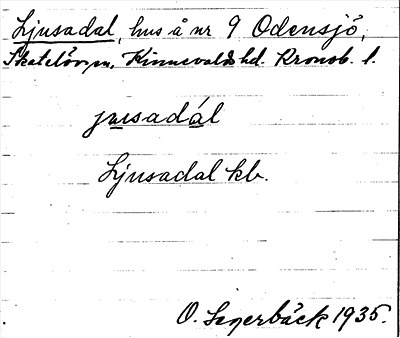 Ljusadal, hus å nr 9 Odensjö,
Skatelövs sn. Kinnevalds hd. Kronob. l.
jusadál
Ljusadal kb.
O. 1935.